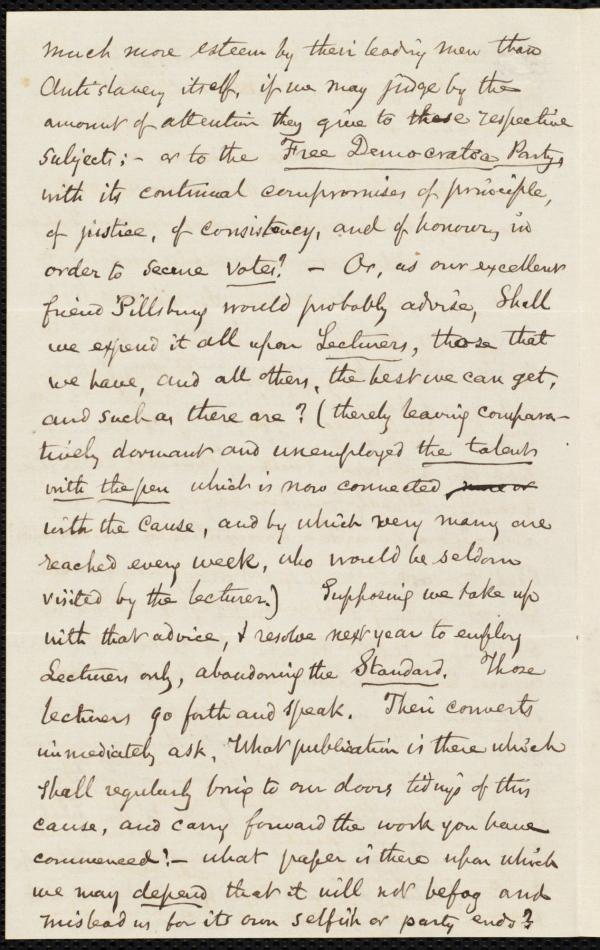 much more esteem by their leading men than
Antislavery itself, if we may judge by the
amount of attention they give to these respective
subjects; - or to the Free Democratic Party,
with its continual compromises of principle,
of justice, of consistency, and of honour, in
order to secure votes? - Or, as our excellent
friend Pillsbury would probably advise, Shall
we expend it all upon Lecturers, those that
we have, and all others, the best we can get,
and such as there are? (thereby leaving compara-
tively dormant and unemployed the talent
with the pen which is now connected
with the Cause, and by which very many are
reached every week, who would be seldom
visited by the lecturer.) Supposing we take up
with that advice, & resolve next year to employ
Lecturers only, abandoning the Standard. Those
lecturers go forth and speak. Their converts
immediately ask, What publication is there which
shall regularly bring to our doors tidings of this
cause, and carry forward the work you have
commenced? - what paper is there upon which
we may depend that it will not befog and
mislead us for its own selfish or party ends?